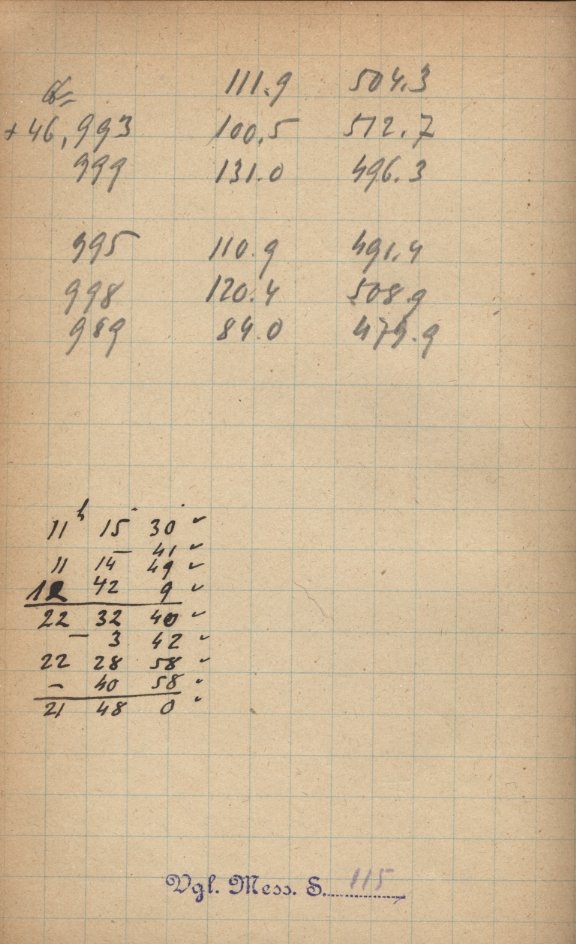 111.9 504.3
+46,993 100,5 512.7
999 131.0 496.3
995 110.9 491.4
998 120.4 508.9
989 84.0 479.9
11h 15 30 ✓
– 41 ✓
11 14 49 ✓
12 42 9 ✓
22 32 40 ✓
– 3 42 ✓
22 28 58 ✓
– 40 58 ✓
21 48 0 ✓
Vgl. Mess. S. 115